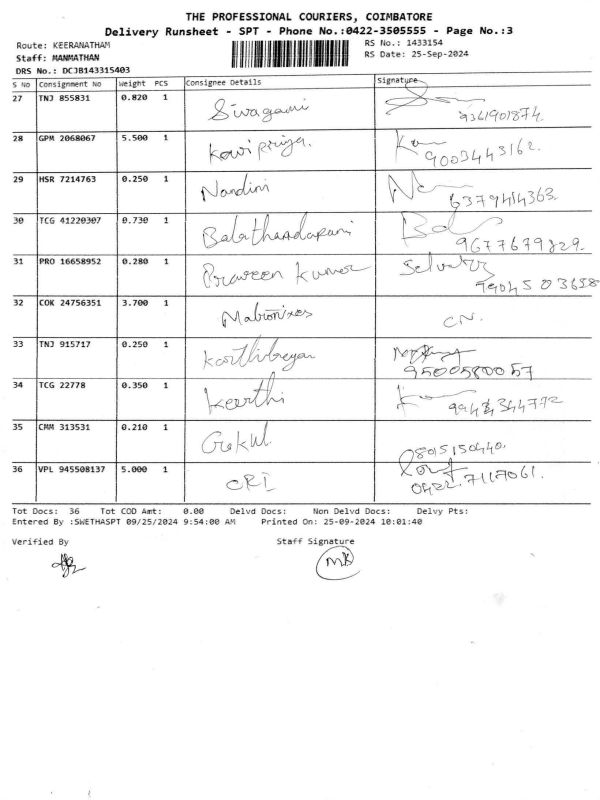 THE PROFESSIONAL COURIERS, COIMBATORE
Delivery Runsheet - SPT - Phone No.:0422-3505555 - Page No.:3
Route: KEERANATHAM RS No.: 1433154
Staff: MANMATHAN RS Date: 25-Sep-2024
DRS No.: DCJB143315403
S No Consignment No Weight PCS Consignee Details Signature
27 TNJ 855831 0.820 1 Sivagami
9361901874.
28 GPM 2068067 5.500 1 Kavipriya.
9003443162.
29 HSR 7214763 0.250 1 Nandini
6379414363.
30 TCG 41220307 0.730 1 Balathandapani
9677679829.
31 PRO 16658952 0.280 1 Praveen Kumar
9904503658
32 COK 24756351 3.700 1 CN.
33 TNJ 915717 0.250 1
9500580057
34 TCG 22778 0.350 1 Keerthi
35 CMM 313531 0.210 1 Gokul.
9805150440.
36 VPL 945508137 5.000 1 CRI
0422.7117061.
Tot Docs: 36 Tot COD Amt: 0.00 Delvd Docs: Non Delvd Docs: Delvy Pts:
Entered By :SWETHASPT 09/25/2024 9:54:00 AM Printed On: 25-09-2024 10:01:40
Verified By Staff Signature
MK